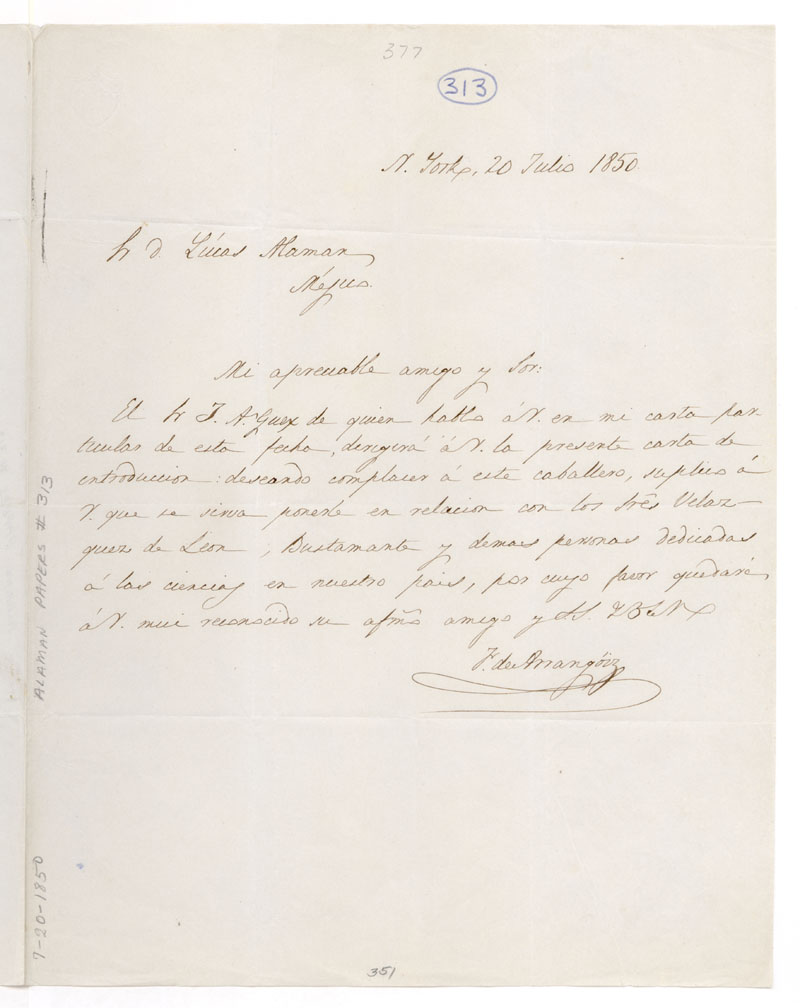 377
313
N. York, 20 Julio 1850.
Sr. d. Lúcas Alaman
Méjico.
Mi apreciable amigo y Sor:
El Sr J. A. Guex de quien hablo á V. en mi carta par-
ticular de esta fecha, dirigirá á V. la presente carta de
introduccion: deseando complacer á este caballero, suplico á
V. que se sirva ponerle en relacion con los Srēs Velaz-
quez de Léon, Bustamante y demas personas dedicadas
á las ciencias en nuestro pais, por cuyo favor quedará
á V. mui reconocido su afmō amigo y SS. QBSM
F. de Arrangóiz
351
ALAMAN PAPERS # 313
7-20-1850